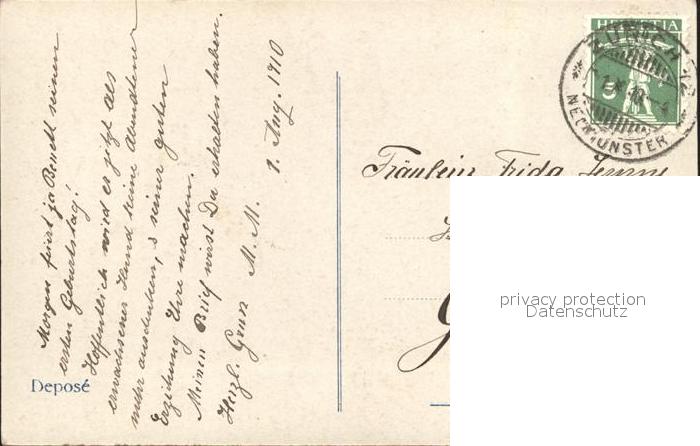 Morgen feiert ja Benett seinen
ersten Geburtstag!
Hoffentlich wird er jetzt als
erwachsener Hund keine Abendteuer
mehr ausdenken, & seiner guten
Erziehung Ehre machen.
Meinen Brief wirst Du erhalten haben.
Herzl. Gruss M. M. 1. Aug. 1910
Deposé
HELVETIA
5
ZÜRICH 12
NEUMÜNSTER
Fräulein Frida Jenny
privacy protection
Datenschutz